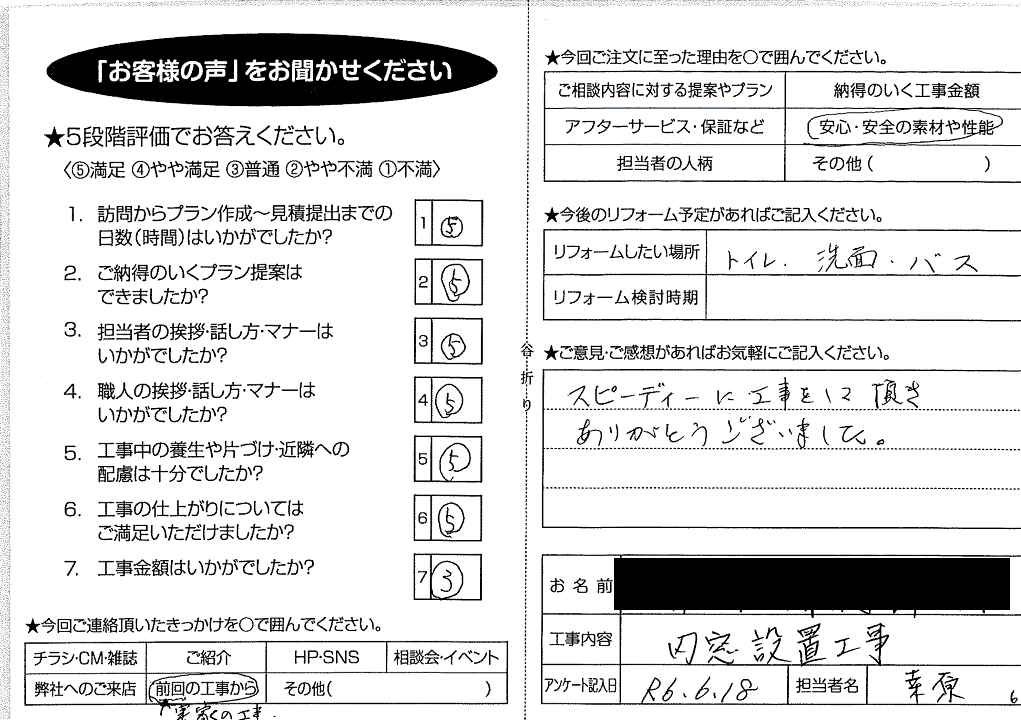 「お客様の声」をお聞かせください
★5段階評価でお答えください。
〈⑤満足 ④やや満足 ③普通 ②やや不満 ①不満〉
1. 訪問からプラン作成～見積提出までの
日数(時間)はいかがでしたか?
1 ⑤
2. ご納得のいくプラン提案は
できましたか?
2 ⑤
3. 担当者の挨拶・話し方・マナーは
いかがでしたか?
3 ⑤
4. 職人の挨拶・話し方・マナーは
いかがでしたか?
4 ⑤
5. 工事中の養生や片づけ・近隣への
配慮は十分でしたか?
5 ⑤
6. 工事の仕上がりについては
ご満足いただけましたか?
6 ⑤
7. 工事金額はいかがでしたか?
7 ③
★今回ご連絡頂いたきっかけを○で囲んでください。
チラシ・CM・雑誌 ご紹介 HP・SNS 相談会・イベント
弊社へのご来店 前回の工事から その他( )
実家の工事
谷折り
★今回ご注文に至った理由を○で囲んでください。
ご相談内容に対する提案やプラン 納得のいく工事金額
アフターサービス・保証など 安心・安全の素材や性能
担当者の人柄 その他( )
★今後のリフォーム予定があればご記入ください。
リフォームしたい場所 トイレ・洗面・バス
リフォーム検討時期
★ご意見・ご感想があればお気軽にご記入ください。
スピーディーに工事をして頂き
ありがとうございました。
お名前
工事内容 内窓設置工事
アンケート記入日 R6.6.18 担当者名 栗原
6